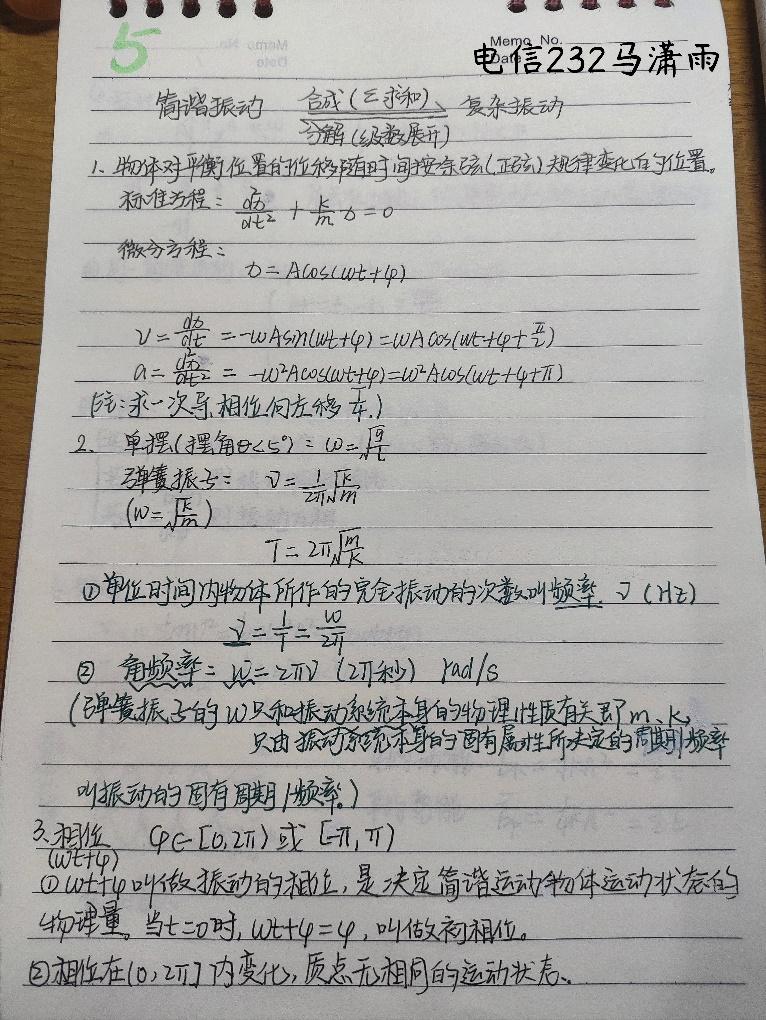 5
Memo No.
Date
电信232马潇雨
简谐振动 合成(Σ求和)、 复杂振动
分解(级数展开)
1、物体对平衡位置的位移随时间按余弦(正弦)规律变化的位置。
标准方程: d²x/dt² + k/m x = 0
微分方程:
x = Acos(ωt+φ)
v = dx/dt = -ωAsin(ωt+φ) = ωAcos(ωt+φ+π/2)
a = d²x/dt² = -ω²Acos(ωt+φ) = ω²Acos(ωt+φ+π)
(注:求一次导,相位向左移 T/4.)
2、 单摆(摆角θ<5°): ω=√(g/L)
弹簧振子: ν = 1/2π √(k/m)
(ω=√(k/m))
T = 2π√(m/k)
①单位时间内物体所作的完全振动的次数叫频率. ν (Hz)
ν = 1/T = ω/2π
② 角频率: ω = 2πν (2π秒) rad/s
(弹簧振子的ω只和振动系统本身的物理性质有关即m、k,
只由振动系统本身的固有属性所决定的周期/频率
叫振动的固有周期/频率。)
3、相位 φ∈[0,2π) 或 [-π,π)
(ωt+φ)
①ωt+φ叫做振动的相位,是决定简谐运动物体运动状态的
物理量。当t=0时,ωt+φ=φ,叫做初相位。
②相位在(0,2π]内变化,质点无相同的运动状态.